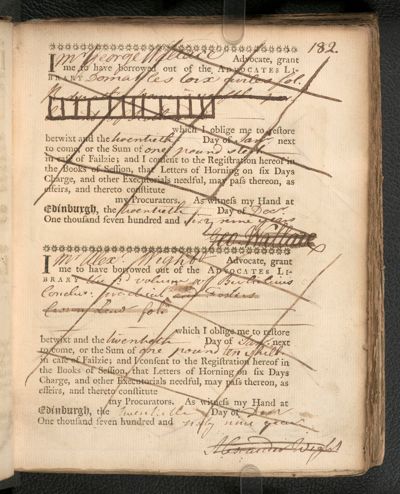 182
I Mr George Wallace Advocate, grant
me to have borrowed out of the ADVOCATES LI-
BRARY Domat les loix civiles fol.
which I oblige me to restore
betwixt and the twentieth Day of Jan. next
to come, or the Sum of one pound ster.
in case of Failzie; and I consent to the Registration hereof in
the Books of Session, that Letters of Horning on six Days
Charge, and other Executorials needful, may pass thereon, as
effeirs, and thereto constitute
my Procurators. As witness my Hand at
Edinburgh, the twentieth Day of Decr.
One thousand seven hundred and sixty nine years
Geo: Wallace
I Mr Alexr. Wight Advocate, grant
me to have borrowed out of the ADVOCATES LI-
BRARY the 3d volume of
fol:
which I oblige me to restore
betwixt and the twentieth Day of Jan. next
to come, or the Sum of one pound ten shill.
in case of Failzie; and I consent to the Registration hereof in
the Books of Session, that Letters of Horning on six Days
Charge, and other Executorials needful, may pass thereon, as
effeirs, and thereto constitute
my Procurators. As witness my Hand at
Edinburgh, the twentieth Day of Decr.
One thousand seven hundred and sixty nine years
Alexander Wight